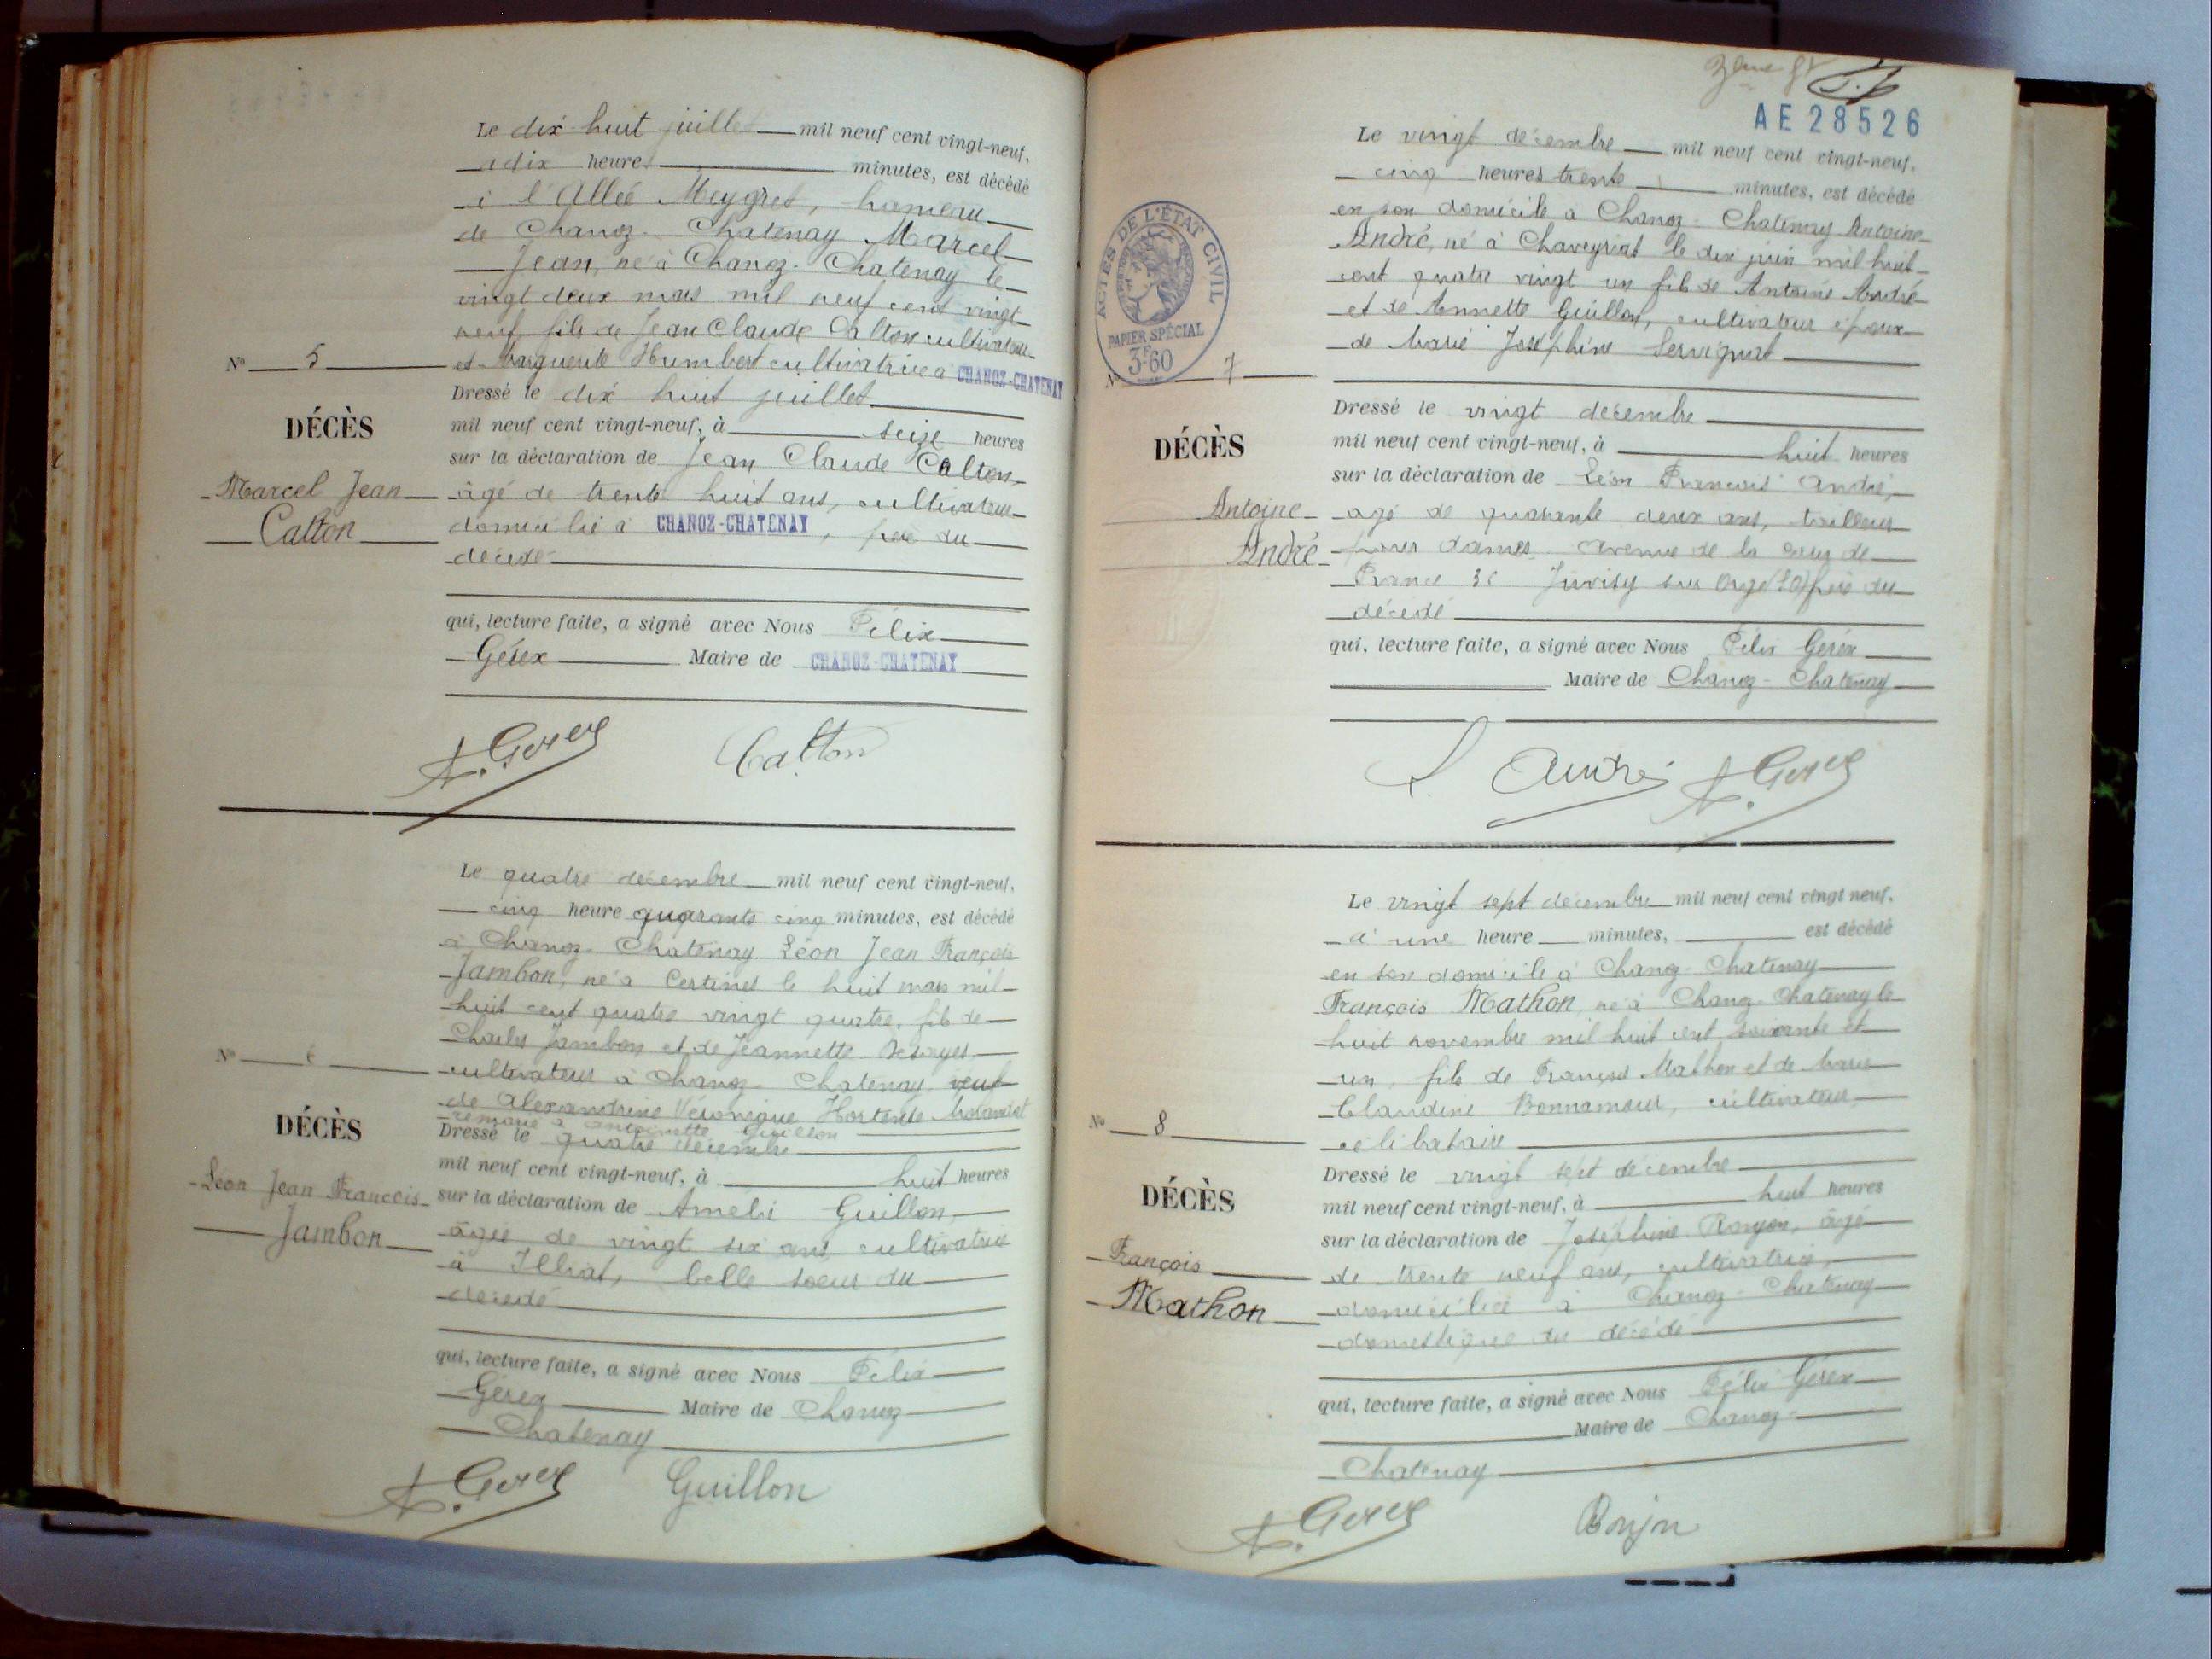 Le dix-huit juillet mil neuf cent vingt-neuf,
à dix heures minutes, est décédé
à l'Allée Meygret, hameau
de Chanoz-Chatenay Marcel
Jean, né à Chanoz-Chatenay le
vingt deux mars mil neuf cent vingt
neuf, fils de Jean Claude Calton cultivateur
et Marguerite Humbert cultivatrice à CHANOZ-CHATENAY
Nº 5
DÉCÈS
Marcel Jean
Calton
Dressé le dix huit juillet
mil neuf cent vingt-neuf, à seize heures
sur la déclaration de Jean Claude Calton
âgé de trente huit ans, cultivateur
domicilié à CHANOZ-CHATENAY, père du
décédé
qui, lecture faite, a signé avec Nous Félix
Gérex Maire de CHANOZ-CHATENAY
Gerex Calton
Le quatre décembre mil neuf cent vingt-neuf,
cinq heure quarante cinq minutes, est décédé
à Chanoz-Chatenay Léon Jean François
Jambon, né à Certines le huit mars mil
huit cent quatre vingt quatre, fils de
Charles Jambon et de Jeannette
cultivateur à Chanoz-Chatenay, veuf
de Alexandrine Véronique Hortense
remarié à Antoinette Guillon
Nº 6
DÉCÈS
Léon Jean François
Jambon
Dressé le quatre décembre
mil neuf cent vingt-neuf, à huit heures
sur la déclaration de Amélie Guillon,
âgée de vingt six ans, cultivatrice
à Illiat, belle soeur du
décédé
qui, lecture faite, a signé avec Nous Félix
Gérex Maire de Chanoz
Chatenay
Gerex Guillon
AE 28526
Le vingt décembre mil neuf cent vingt-neuf,
cinq heures trente minutes, est décédé
en son domicile à Chanoz-Chatenay Antoine
André, né à Chaveyriat le dix juin mil huit
cent quatre vingt un fils de Antoine André
et de Annette Guillon, cultivateur époux
de Marie Joséphine Servignat
ACTES DE L'ÉTAT CIVIL
PAPIER SPÉCIAL
3F60
Nº 7
DÉCÈS
Antoine
André
Dressé le vingt décembre
mil neuf cent vingt-neuf, à huit heures
sur la déclaration de Léon François André,
âgé de quarante deux ans, tailleur
pour dames avenue de la cour de
France Juvisy sur Orge (SO) du
décédé
qui, lecture faite, a signé avec Nous Félix Gérex
Maire de Chanoz-Chatenay
L. André Gerex
Le vingt sept décembre mil neuf cent vingt neuf,
à une heure minutes, est décédé
en son domicile à Chanoz-Chatenay
François Mathon, né à Chanoz-Chatenay le
huit novembre mil huit cent soixante et
un, fils de François Mathon et de Marie
Claudine Bonnamour, cultivateur,
célibataire
Nº 8
DÉCÈS
François
Mathon
Dressé le vingt sept décembre
mil neuf cent vingt-neuf, à huit heures
sur la déclaration de Joséphine âgé
de trente neuf ans, cultivatrice,
domiciliée à Chanoz-Chatenay
domestique du décédé
qui, lecture faite, a signé avec Nous Félix Gérex
Maire de Chanoz-
Chatenay
Gerex